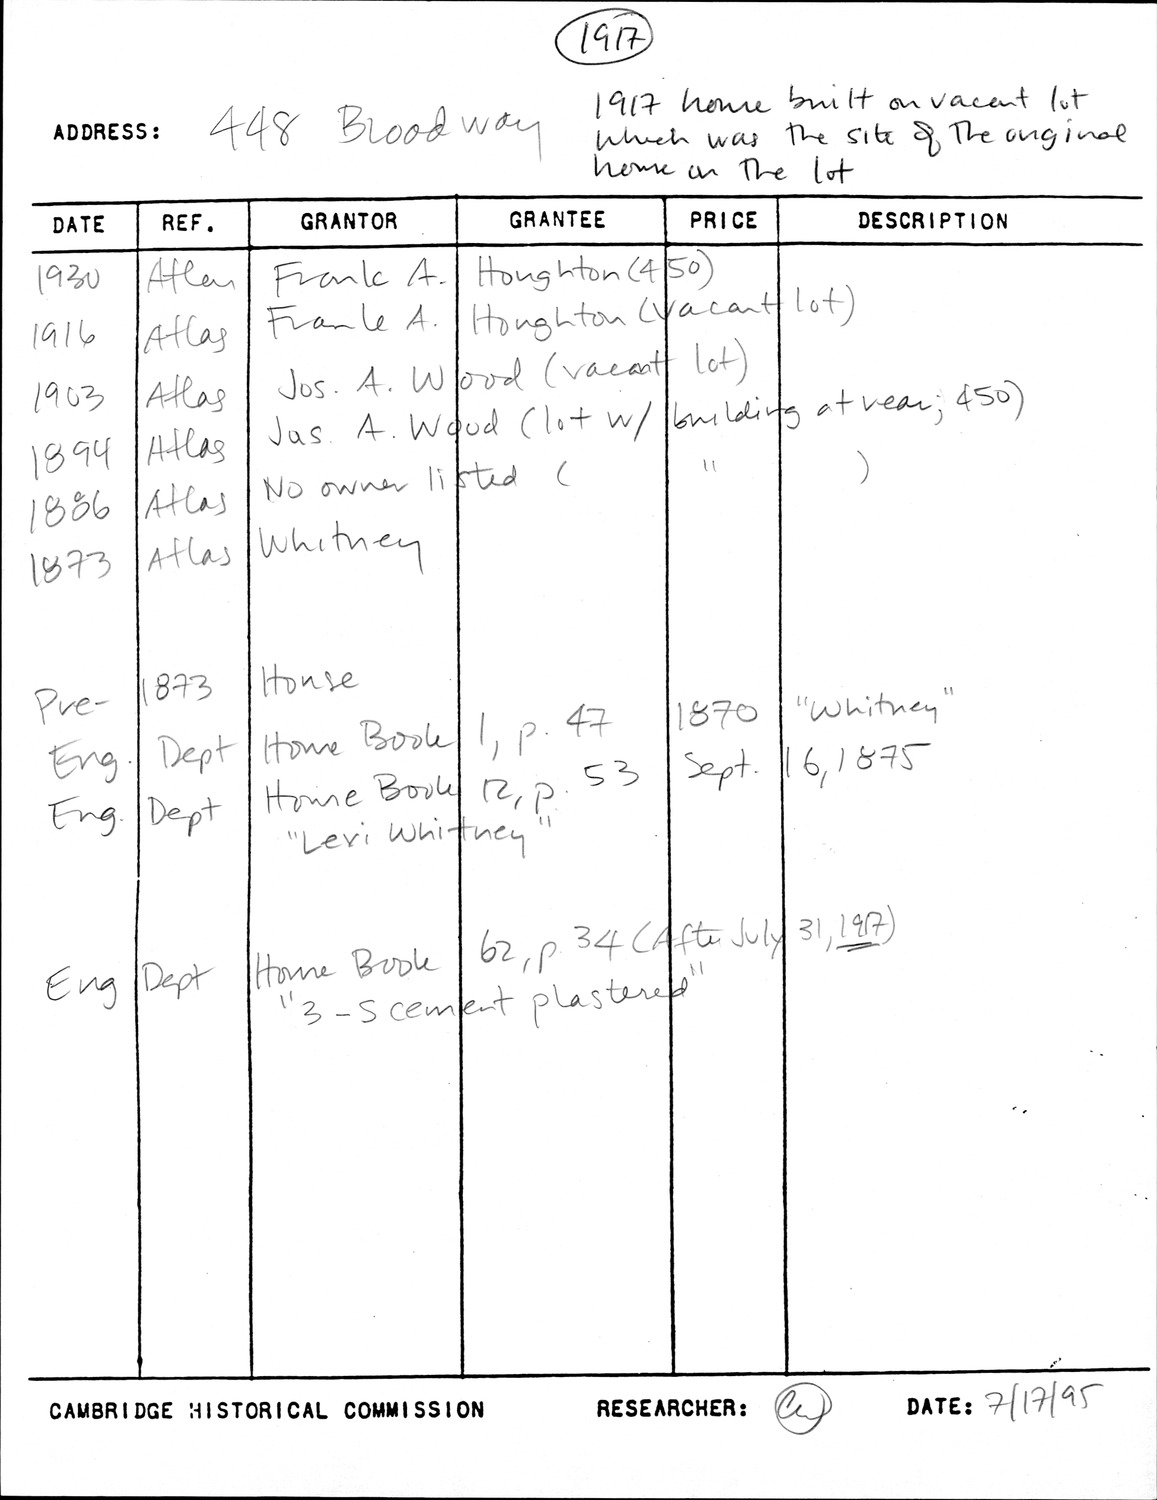 1917
1917 house built on vacant lot
ADDRESS: 448 Broadway
which was the site of the original
house on the lot
DATE REF. GRANTOR GRANTEE PRICE DESCRIPTION
1930 Atlas Frank A. Houghton (450)
1916 Atlas Frank A. Houghton (vacant lot)
1903 Atlas Jos. A. Wood (vacant lot)
1894 Atlas Jas. A. Wood (lot w/ building at rear; 450)
1886 Atlas No owner listed ( " )
1873 Atlas Whitney
Pre- 1873 House
Eng. Dept House Book 1, p. 47 1870 "Whitney"
Eng. Dept House Book 12, p. 53 Sept. 16, 1875
"Levi Whitney"
Eng Dept House Book 62, p. 34 (After July 31, 1917)
"3-S cement plastered"
CAMBRIDGE HISTORICAL COMMISSION RESEARCHER: DATE: 7/17/95